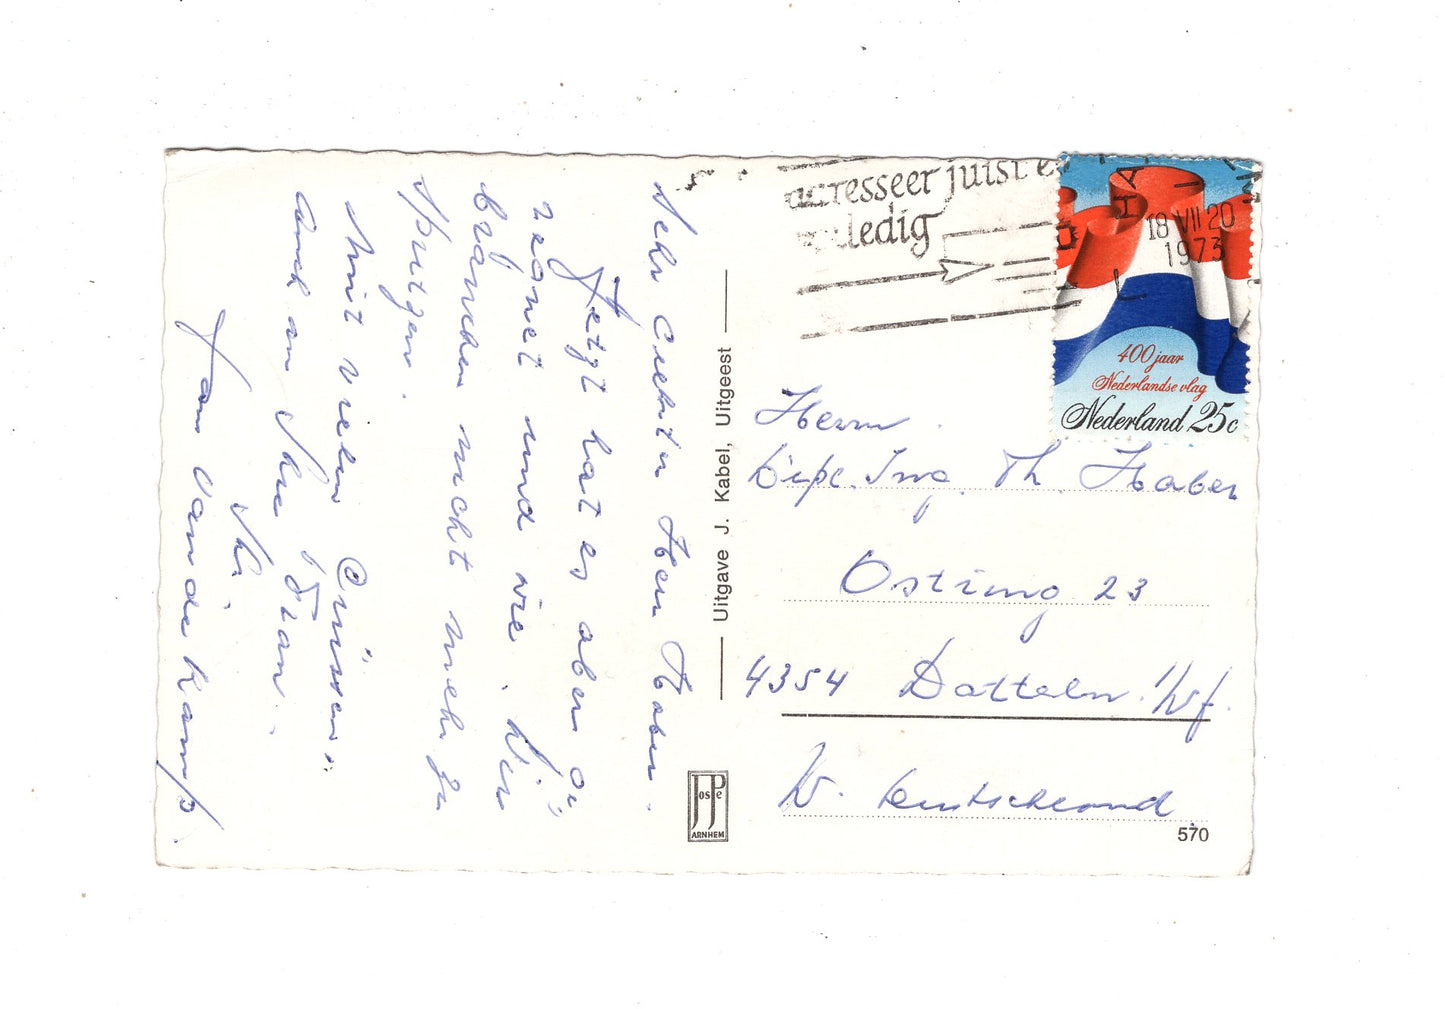 Sehr Geehrter Herr Haber.
Jetzt hat es aber ge
regnet und wie. Wir
brauchen nicht mehr zu
spritzen.
Mit vielen Grüssen
auch an Ihre Frau.
Ihr
Jan van de Kamp
Uitgave J. Kabel, Uitgeest
JosPe
ARNHEM
adresseer juist e
volledig
18 VII 20
1973
400 jaar
Nederlandse vlag
Nederland 25c
Herrn
Dipl. Ing. Th. Haber
Ostring 23
4354 Datteln. Wf.
W. Deutschland
570